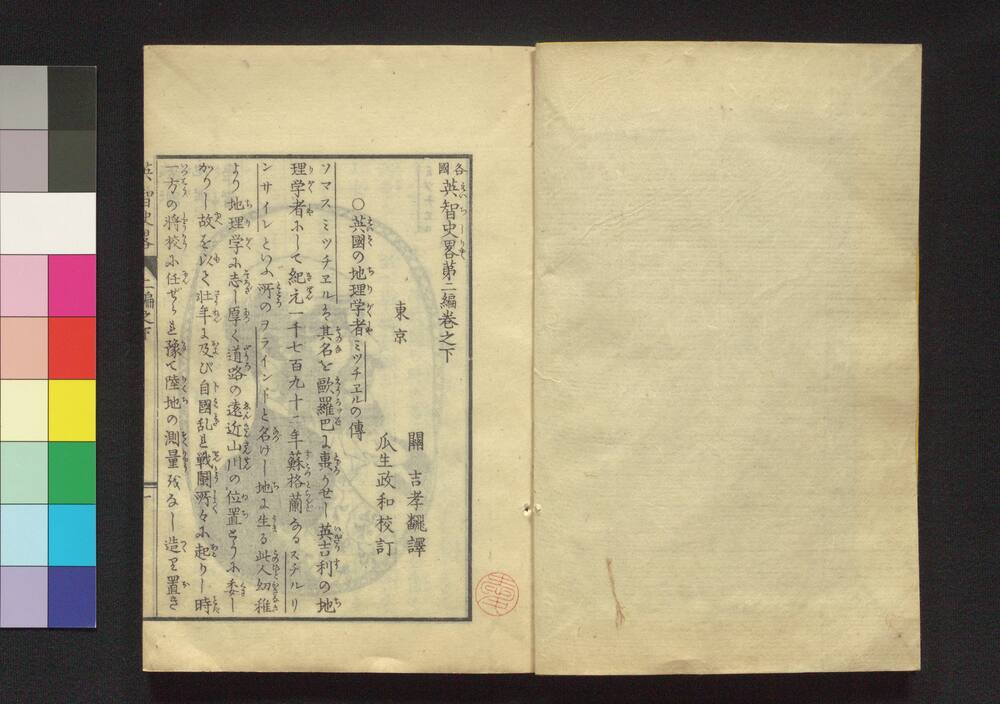 各國英智史畧第二編巻之下
東京
關 吉孝飜譯
瓜生政和校訂
○英國の地理学者ミツチヱルの傳
ソマスミツチヱルハ其名を歐羅巴に轟かせし英吉利の地
理学者にして紀元一千七百九十二年蘇格蘭なるスチルリ
ンサイルといふ所のヲラインドと名けし地に生る此人幼稚
より地理学に志し厚く道路の遠近山川の位置とうに委し
かりし故を以て壮年に及び自國乱れ戦闘所々に起りし時
一方の将校に任ぜられ豫て陸地の測量残るなし造り置き
英智史畧 二編之下 一